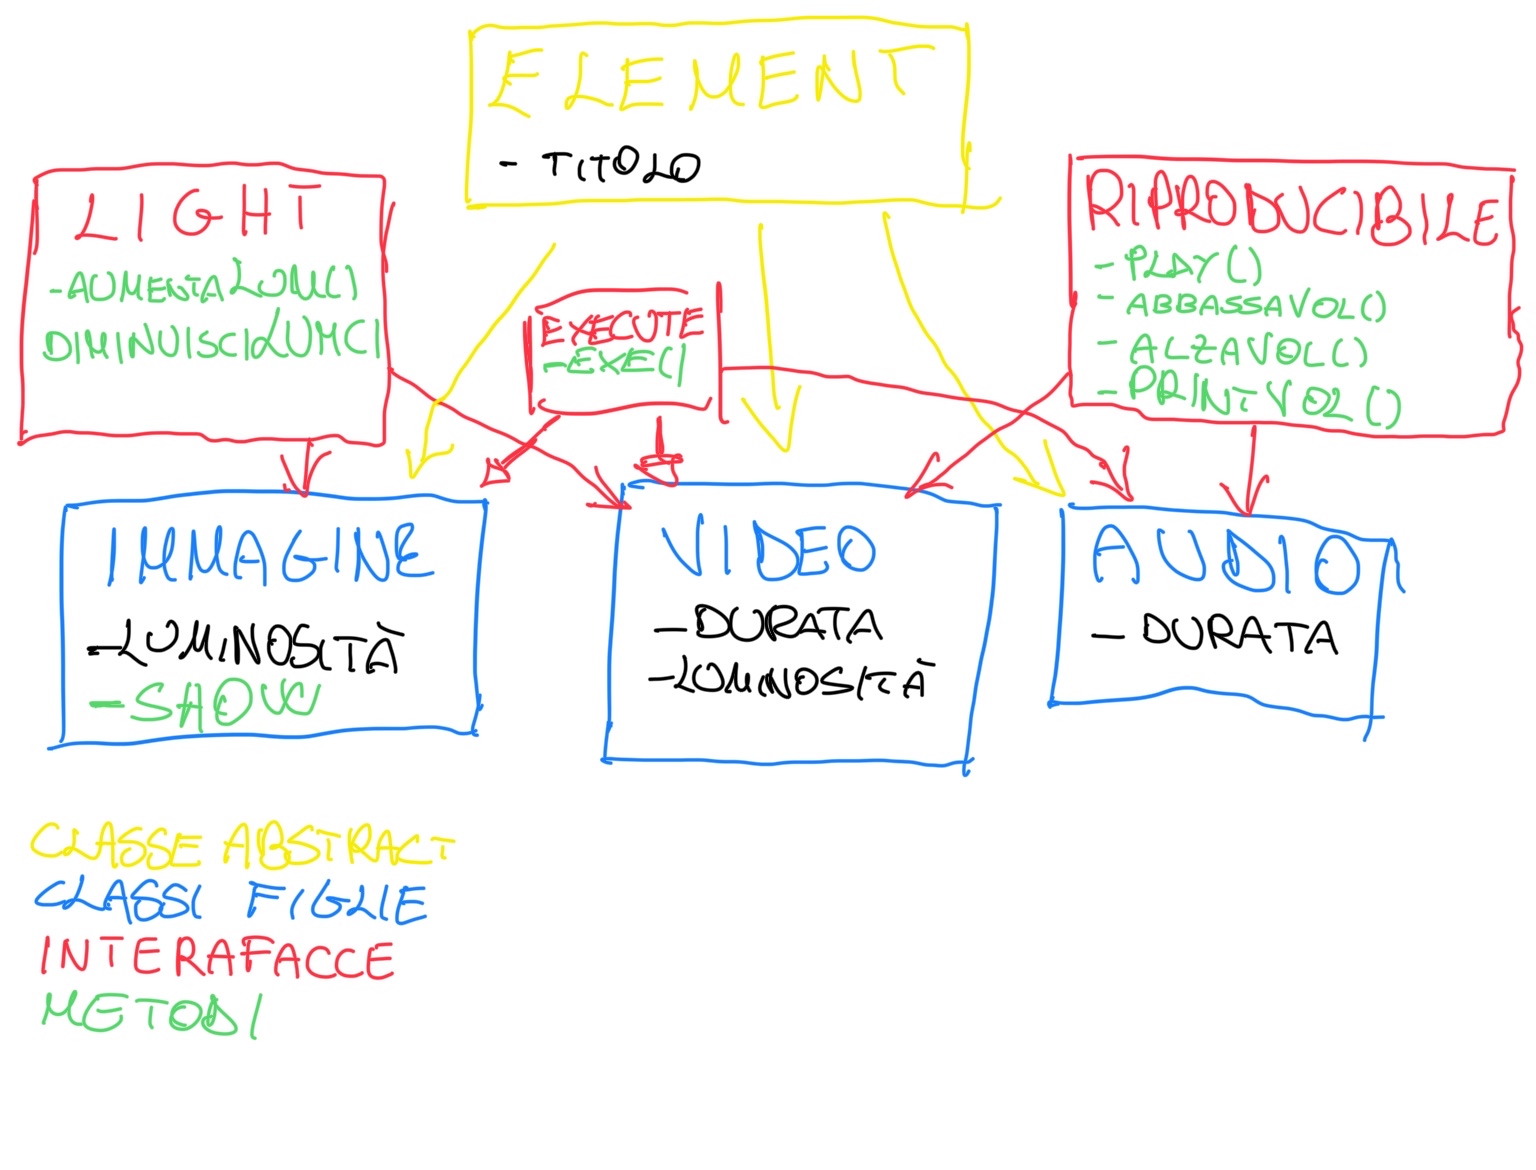 ELEMENT
- TITOLO
LIGHT
-AUMENTALUM()
DIMINUISCILUM()
EXECUTE
-EXE()
RIPRODUCIBILE
- PLAY()
- ABBASSAVOL()
- ALZAVOL()
- PRINTVOL()
IMMAGINE
-LUMINOSITÀ
-SHOW
VIDEO
-DURATA
-LUMINOSITÀ
AUDIO
- DURATA
CLASSE ABSTRACT
CLASSI FIGLIE
INTERAFACCE
METODI